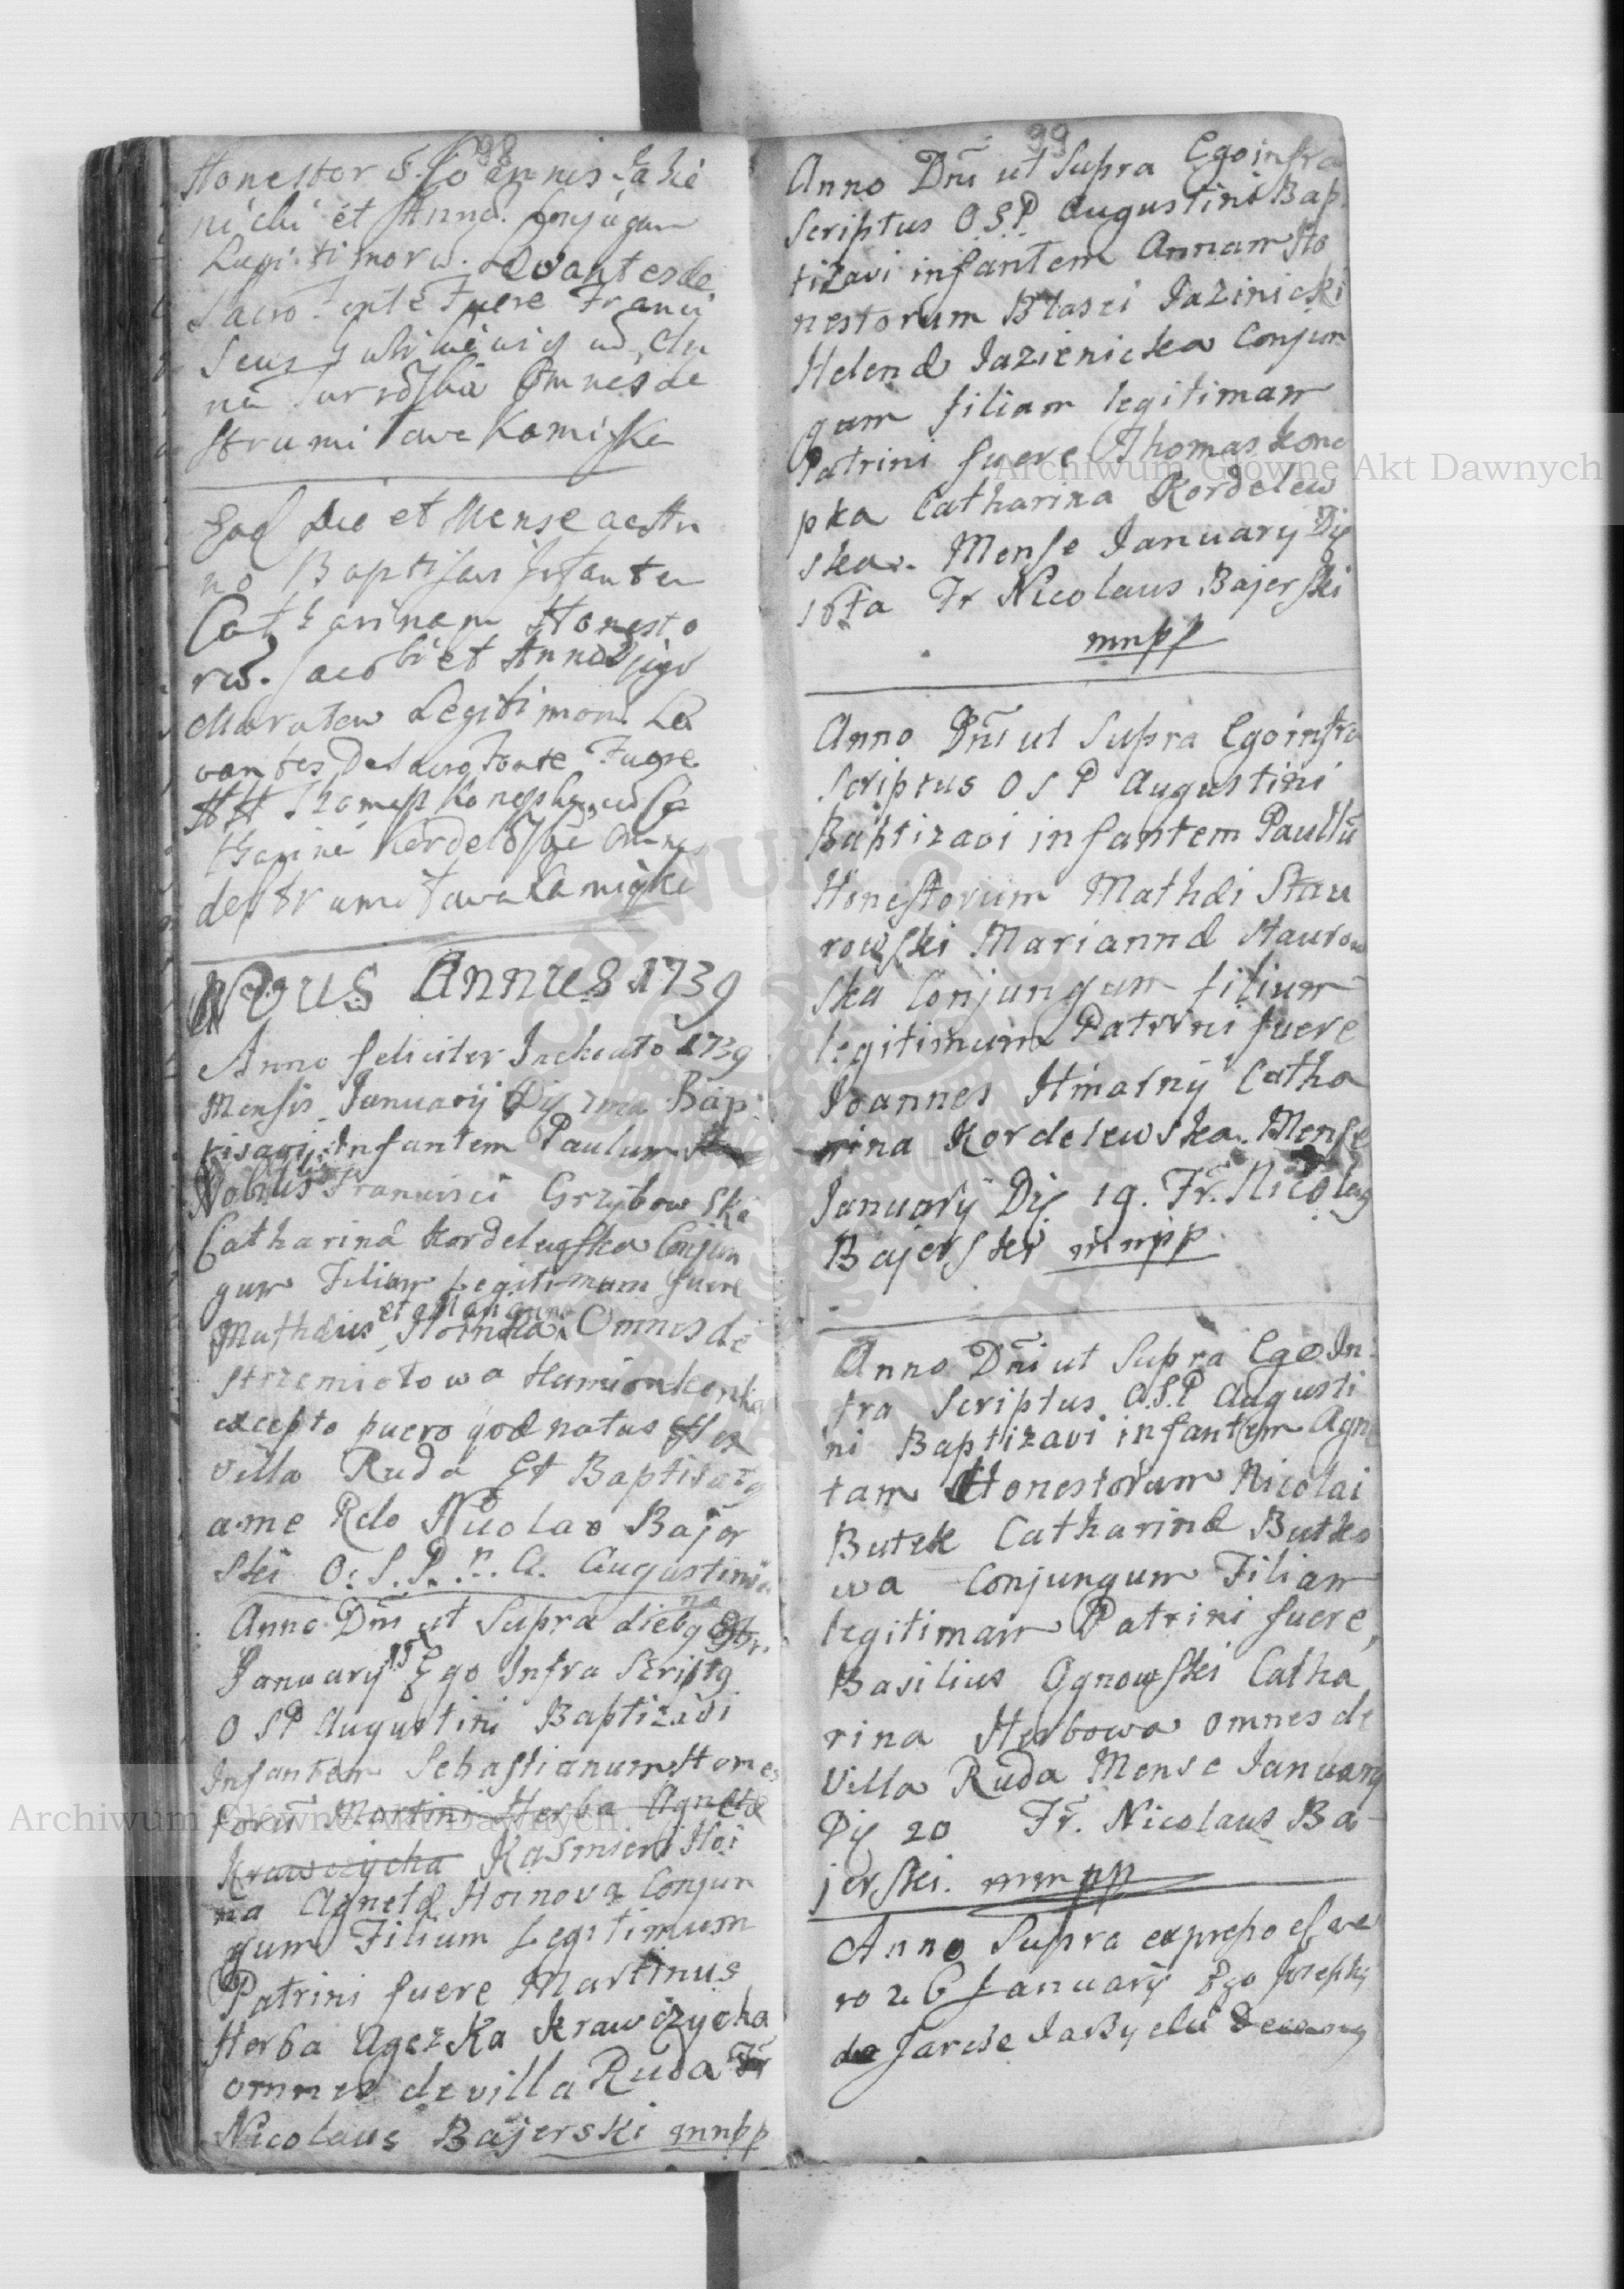 98
Honestor Joannis
et Anna Conjugum
Legitimorũ. Levantes de
Sacro Fonte Fuere Franci
scus
Omnes de
Strumiłowa Kamiska
Eod Die et Mense
Baptisavi Infantem
Catharinam Honesto
rũ. Jacobi et Anna
Legitimorũ Le
vantes De Sacro Fonte Fuere
HH Thomas Konopka
tharina Omnes
de Strumiłowa Kamiska
Novus Annus 1739
Anno feliciter Inchoato 1739
Mensis Januarij Dij 7ma Bap
tisavi Infantem Paulum
Nobilis Francisci Grzybowski
Catharinæ Kordelewska Conjun
gum Filium Legitimum fuere
Mathæus et Marianna Omnes de
Strzemiłowa Kamionka
excepto puero qod natus Est ex
villa Ruda Et Baptisatg
a me Rdo Nicolao Bajer
ski O: S. P. n. A. Augustini
Anno Dni ut Supra die
January 15 Ego Infra Scriptg
O S P Augustini Baptizavi
Infantem Sebastianum Hones
torũ Martini Herba Agnetæ
Krawczycha Kasmieri Hoi
na Agnetæ Hoinova Conjun
gum Filium Legitimum
Patrini fuere Martinus
Herba Agezka Krawczycha
omnes de villa Ruda Fr
Nicolaus Bajerski mnpp
99
Anno Dni ut Supra Ego infra
Scriptus O S P Augustini Bap
tizavi infantem Annam Ho
nestorum Błaszi Jazinicki
Helenæ Jazienicka Conjun
gum filiam legitimam
Patrini fuere Thomas Kono
pka Catharina Kordelew
ska. Mense January Dij
16ta Fr Nicolaus Bajerski
mnpp
Anno Dni ut Supra Ego infra
Scriptus O S P Augustini
Baptizavi infantem Paullũ
Honestorum Mathæi Stau
rowski Mariannæ Staurow
ska Conjungum filium
legitimum Patrini fuere
Joannes Hmarny Catha
rina Kordelewska. Mense
January Dij 19. Fr. Nicolag
Bajerski mnpp
Anno Dni ut Supra Ego In
fra Scriptus O.S.P Augusti
ni Baptizavi infantem Agne
tam Honestorum Nicolai
Butek Catharinæ Butko
wa Conjungum Filiam
legitimam Patrini fuere,
Basilius Ognowski Catha
rina Herbowa omnes de
Villa Ruda Mense January
Dij 20 Fr. Nicolaus Ba-
jerski. mnpp
Anno Supra expresso
ro 26 January Ego Josephg
de
Archiwum Główne Akt Dawnych
Archiwum Główne Akt Dawnych